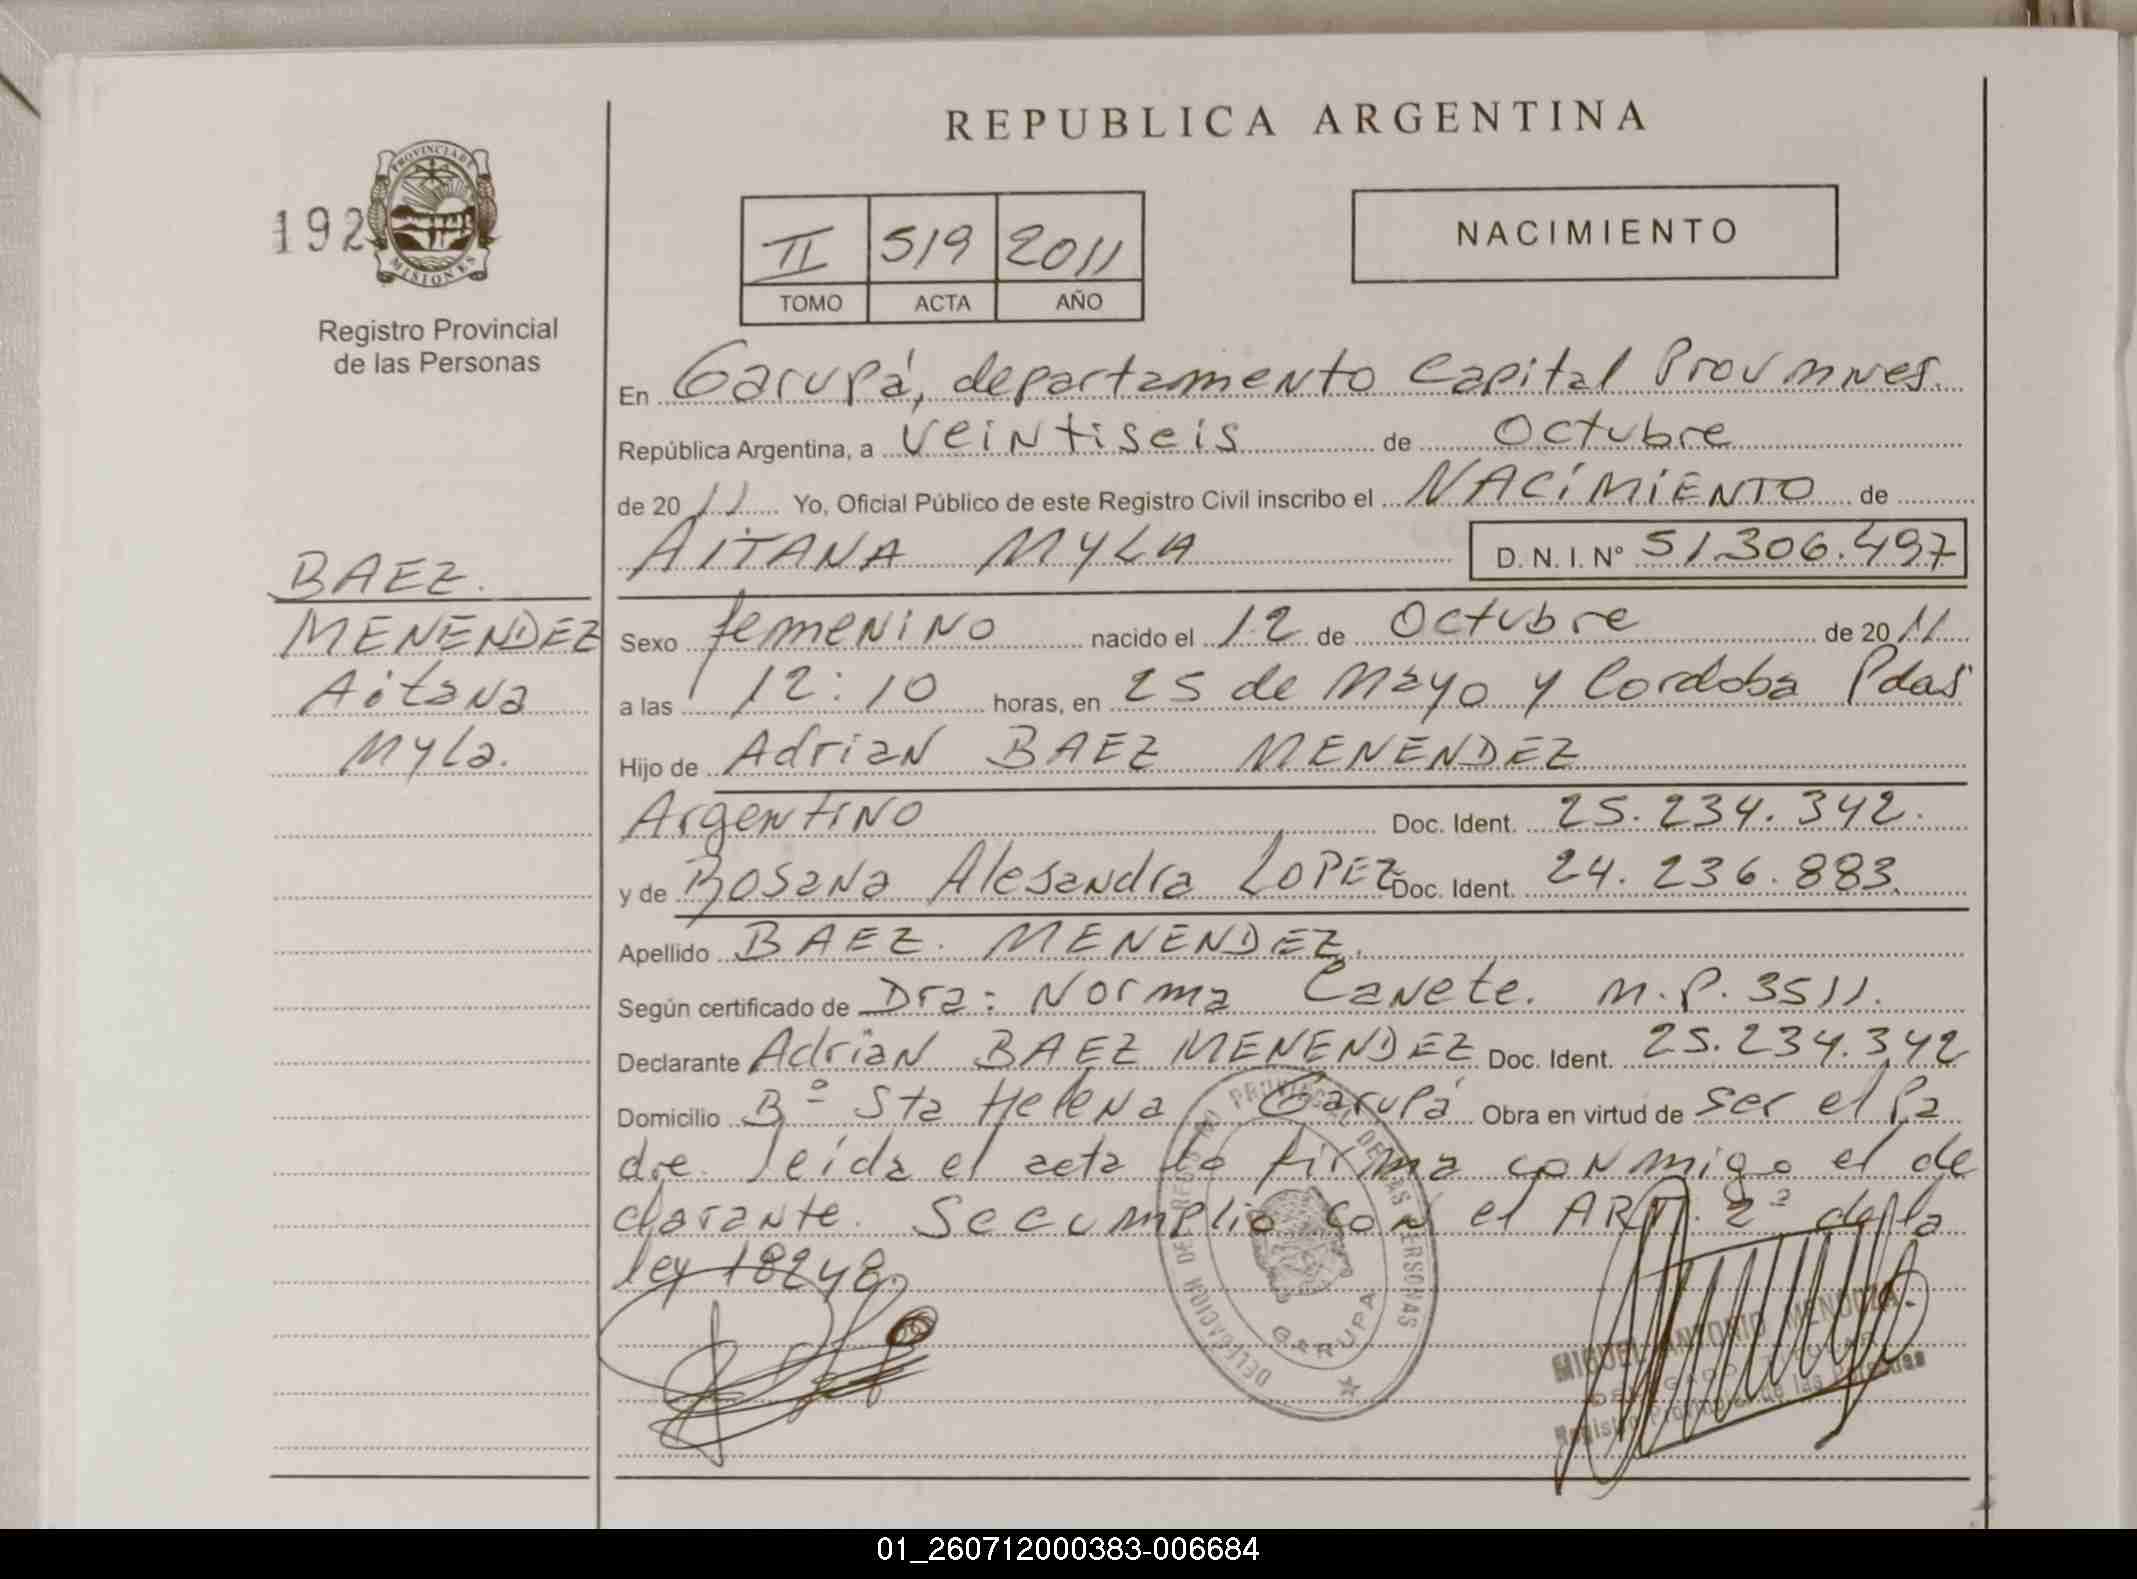 REPUBLICA ARGENTINA
192
PROVINCIA DE
MISIONES
Registro Provincial
de las Personas
II 519 2011
TOMO ACTA AÑO
NACIMIENTO
En Garupá, departamento Capital Prov mnes.
República Argentina, a veintiseis de Octubre
de 2011 Yo, Oficial Público de este Registro Civil inscribo el NACIMIENTO de
AITANA MYLA D. N. I. N° 51.306.497
BAEZ.
MENENDEZ
Aitana
Myla.
Sexo femenino nacido el 12 de Octubre de 2011
a las 12:10 horas, en 25 de Mayo y Cordoba Pdas
Hijo de Adrian BAEZ MENENDEZ
Argentino Doc. Ident. 25.234.342.
y de Rosana Alesandra LOPEZ Doc. Ident. 24.236.883
Apellido BAEZ. MENENDEZ.
Según certificado de Dra: Norma Canete. M.P. 3511.
Declarante Adrian BAEZ MENENDEZ Doc. Ident. 25.234.342
Domicilio Bº Sta Helena Garupá Obra en virtud de ser el Pa
dre. leida el acta la firma conmigo el de
clarante. Se cumplio con el ART. 2º de la
ley 18248.
DELEGACION DE REGISTRO PROVINCIAL DE LAS PERSONAS
GARUPA
MIGUEL ANTONIO MENDOZA
DELEGADO TITULAR
Registro Provincial de las Personas
01_260712000383-006684